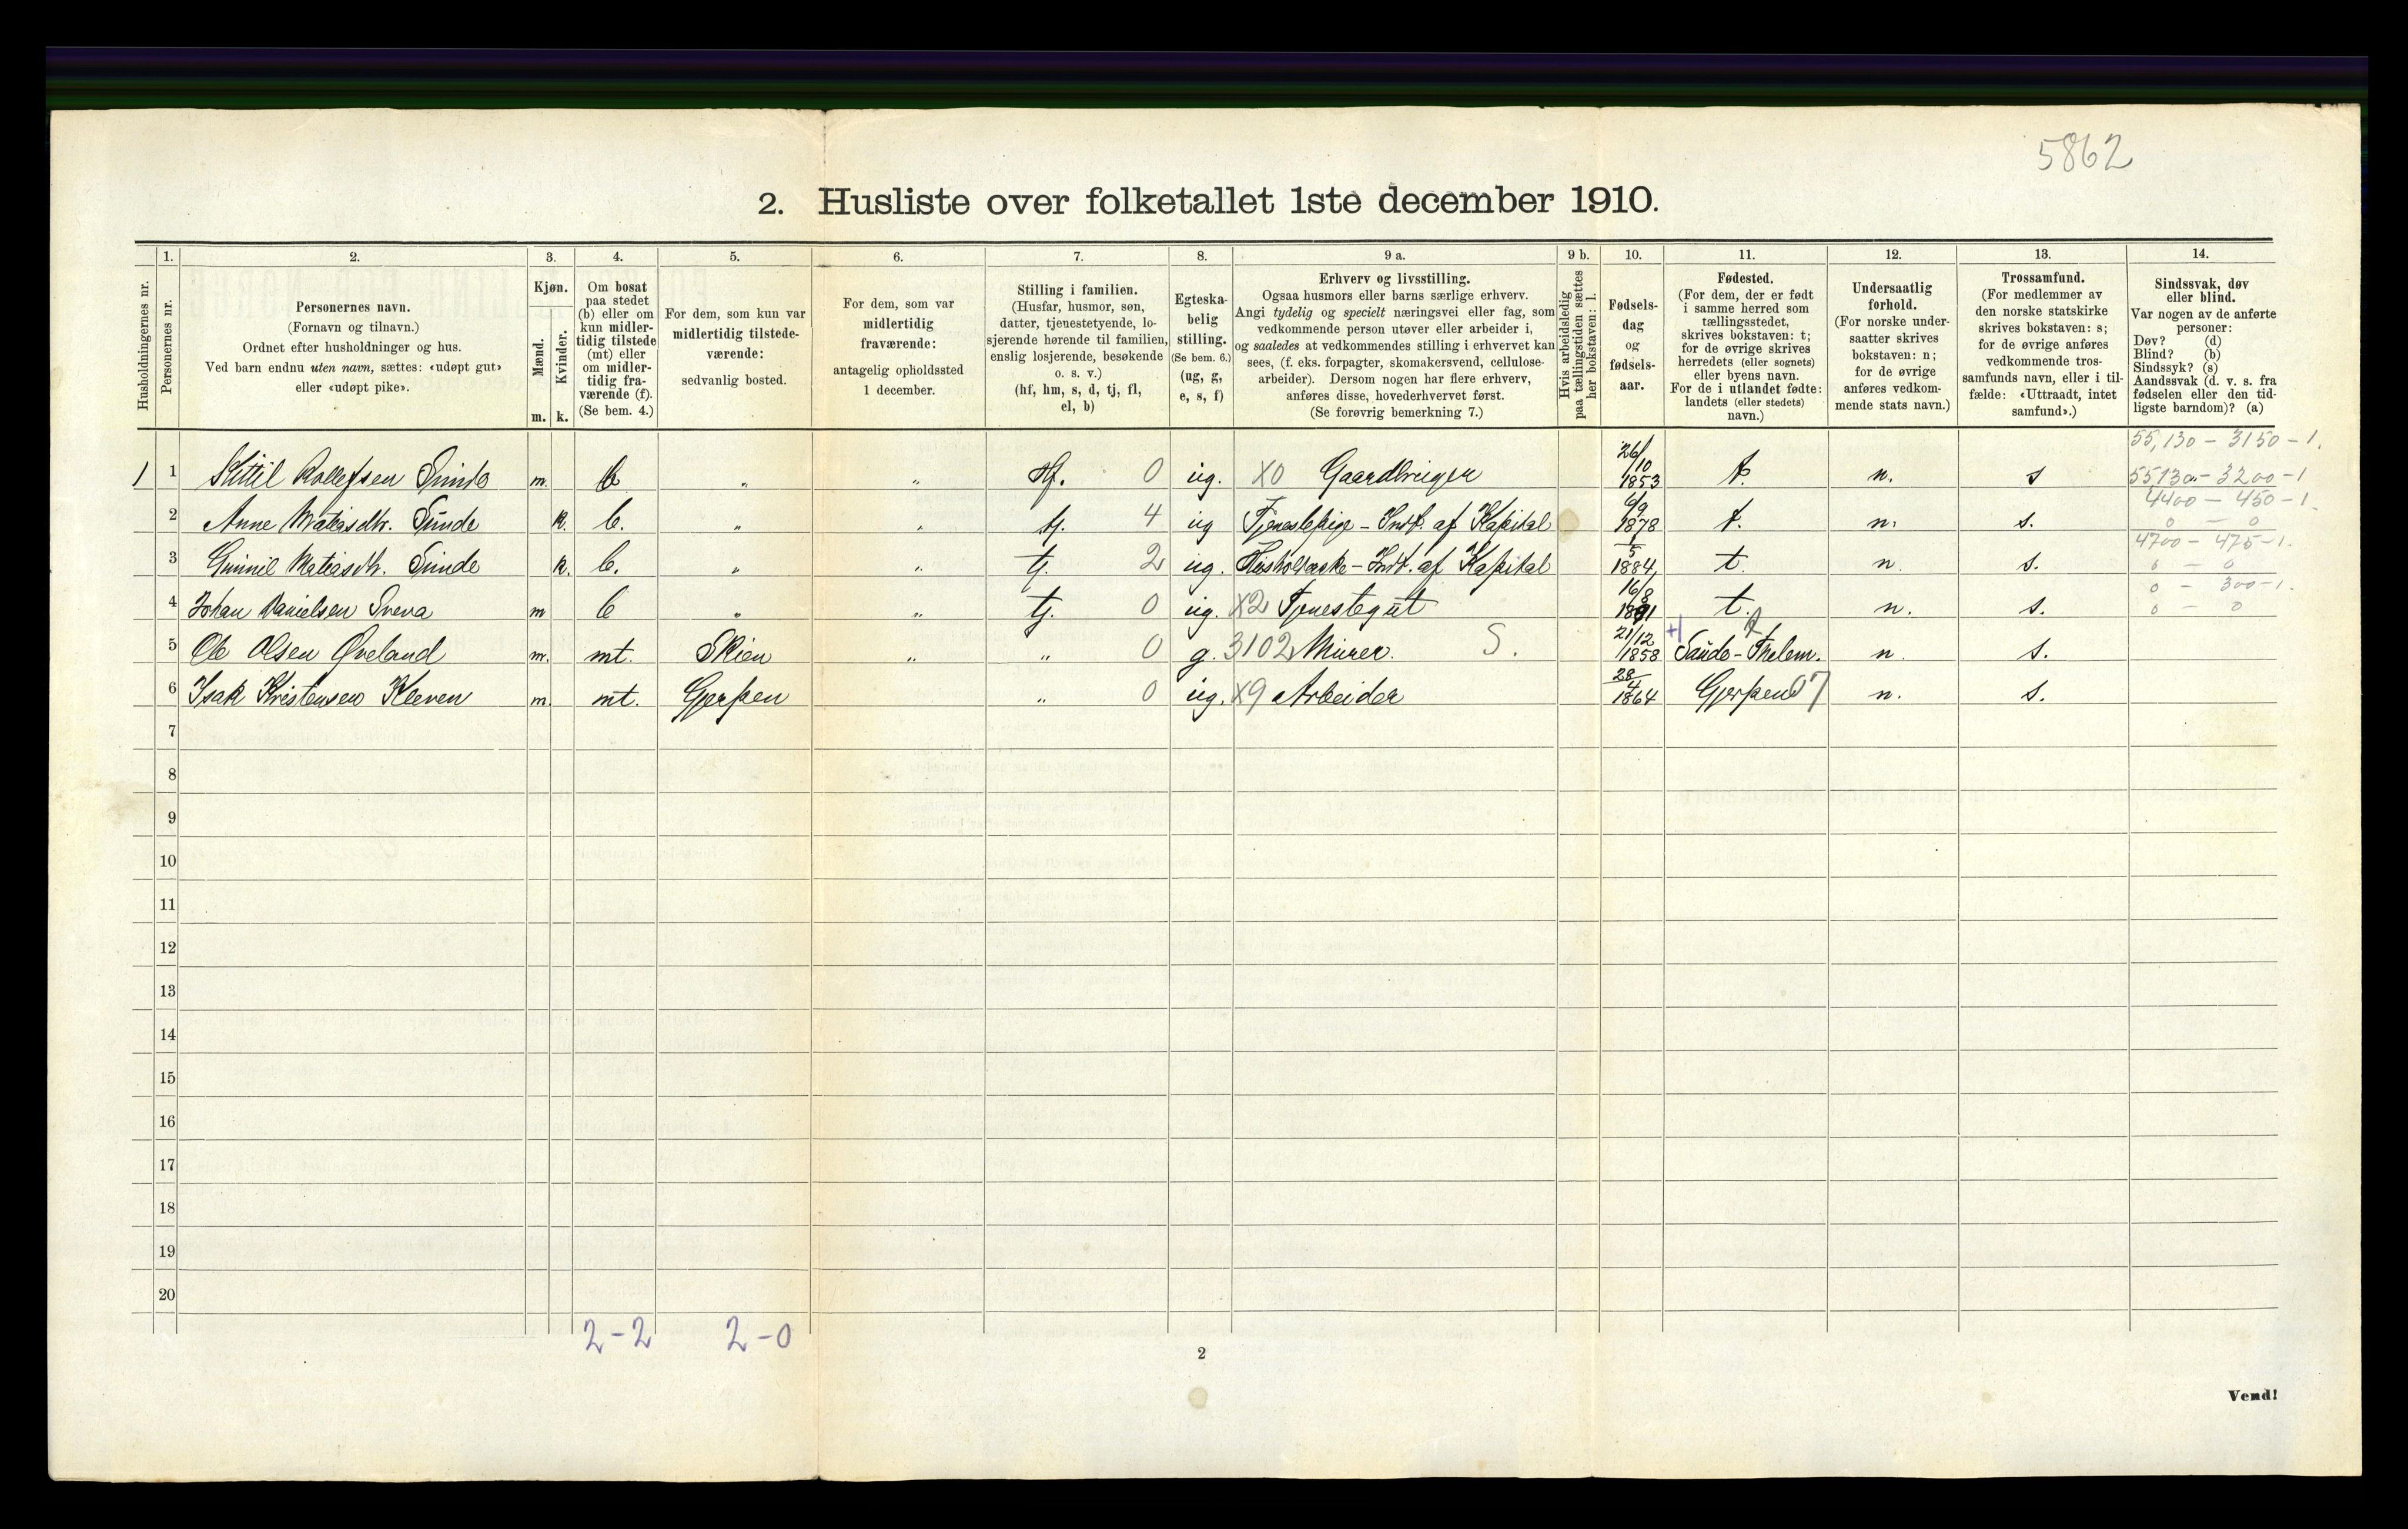 5862
2. Husliste over folketallet 1ste december 1910.
Husholdningernes nr.
1.
Personernes nr.
2.
Personernes navn.
(Fornavn og tilnavn.)
Ordnet efter husholdninger og hus.
Ved barn endnu uten navn, sættes: «udøpt gut»
eller «udøpt pike».
3.
Kjøn.
Mænd.
Kvinder.
m. k.
4.
Om bosat
paa stedet
(b) eller om
kun midler-
tidig tilstede
(mt) eller
om midler-
tidig fra-
værende (f).
(Se bem. 4.)
5.
For dem, som kun var
midlertidig tilstede-
værende:
sedvanlig bosted.
6.
For dem, som var
midlertidig
fraværende:
antagelig opholdssted
1 december.
7.
Stilling i familien.
(Husfar, husmor, søn,
datter, tjenestetyende, lo-
sjerende hørende til familien,
enslig losjerende, besøkende
o. s. v.)
(hf, hm, s, d, tj, fl,
el, b)
8.
Egteska-
belig
stilling.
(Se bem. 6.)
(ug, g,
e, s, f)
9 a.
Erhverv og livsstilling.
Ogsaa husmors eller barns særlige erhverv.
Angi tydelig og specielt næringsvei eller fag, som
vedkommende person utøver eller arbeider i,
og saaledes at vedkommendes stilling i erhvervet kan
sees, (f. eks. forpagter, skomakersvend, cellulose-
arbeider). Dersom nogen har flere erhverv,
anføres disse, hovederhvervet først.
(Se forøvrig bemerkning 7.)
9 b.
Hvis arbeidsledig
paa tællingstiden sættes
her bokstaven: l.
10.
Fødsels-
dag
og
fødsels-
aar.
11.
Fødested.
(For dem, der er født
i samme herred som
tællingsstedet,
skrives bokstaven: t;
for de øvrige skrives
herredets (eller sognets)
eller byens navn.
For de i utlandet fødte:
landets (eller stedets)
navn.)
12.
Undersaatlig
forhold.
(For norske under-
saatter skrives
bokstaven: n;
for de øvrige
anføres vedkom-
mende stats navn.)
13.
Trossamfund.
(For medlemmer av
den norske statskirke
skrives bokstaven: s;
for de øvrige anføres
vedkommende tros-
samfunds navn, eller i til-
fælde: «Uttraadt, intet
samfund».)
14.
Sindssvak, døv
eller blind.
Var nogen av de anførte
personer:
Døv? (d)
Blind? (b)
Sindssyk? (s)
Aandssvak (d. v. s. fra
fødselen eller den tid-
ligste barndom)? (a)
55,130 - 3150 - 1.
1 1 Kittil Rollefsen Sunde m. b „ „ Hf. 0 ug. X0 Gaardbruger 26/10 1853 t. n. s 55130 - 3200 - 1
4400 - 450 - 1.
2 Anne Matiasdtr. Sunde k. b. „ „ tj. 4 ug Tjenestepige - Indt. af Kapital 6/9 1878 t. n. s. 0 - 0
4700 - 475 - 1.
3 Gunnil Matiasdtr. Sunde k. b. „ „ tj. 2 ug. Husholderske - Indt. af Kapital 1/5 1884 t. n. s. 0 - 0
0 - 300 - 1.
4 Johan Danielsen Sveva m b „ „ tj. 0 ug. X2 Tjenestegut 16/8 1891 t. n. s. 0 - 0
5 Ole Olsen Øveland m. mt. Skien „ „ 0 g. 3102 Murer. S. 21/12 1858 +1 Saude - Thelem. n. s.
6 Isak Kristensen Kleven m. mt. Gjerpen „ 0 ug. X9 Arbeider 28/4 1864 Gjerpen 07 n. s.
7
8
9
10
11
12
13
14
15
16
17
18
19
20
2-2 2-0
2
Vend!